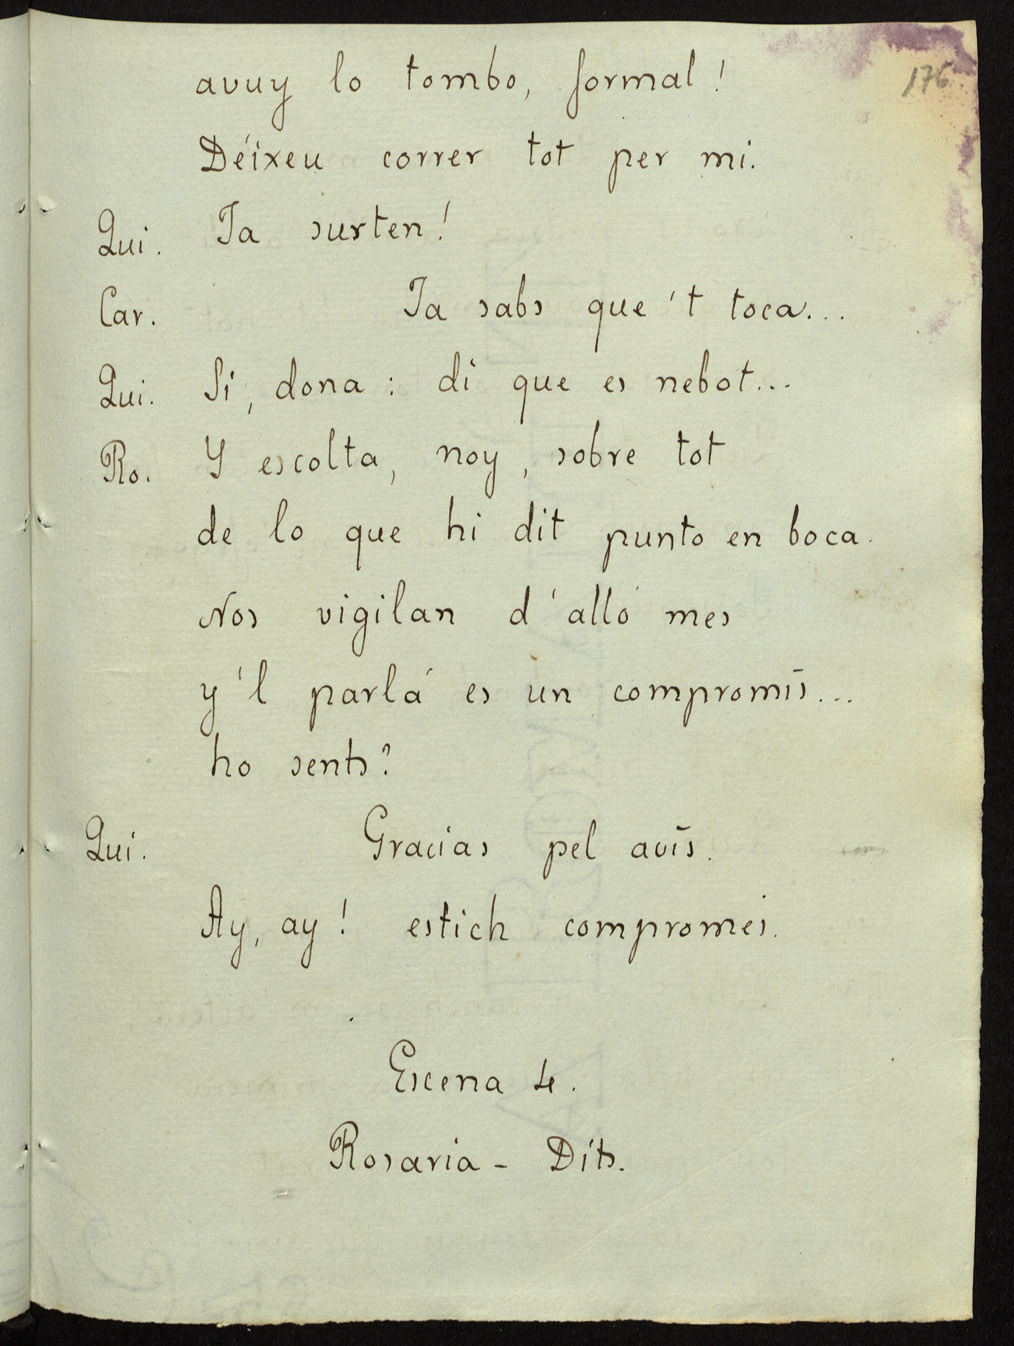 176
avuy lo tombo, formal!
Déixeu correr tot per mi.
Qui. Ja surten!
Car. Ja sabs que 't toca...
Qui. Si, dona: di que es nebot...
Ro. Y escolta, noy, sobre tot
de lo que hi dit punto en boca.
Nos vigilan d'alló mes
y'l parlá es un compromís...
ho sents?
Qui. Gracias pel avís.
Ay, ay! estich compromes.
Escena 4.
Rosaria - Dits.